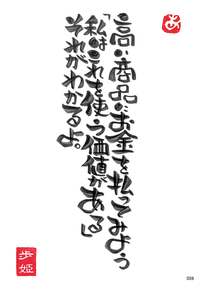 あ
高い商品にお金を払ってみよう
「私はこれを使う価値がある」
それがわかるよ。
歩姫
056